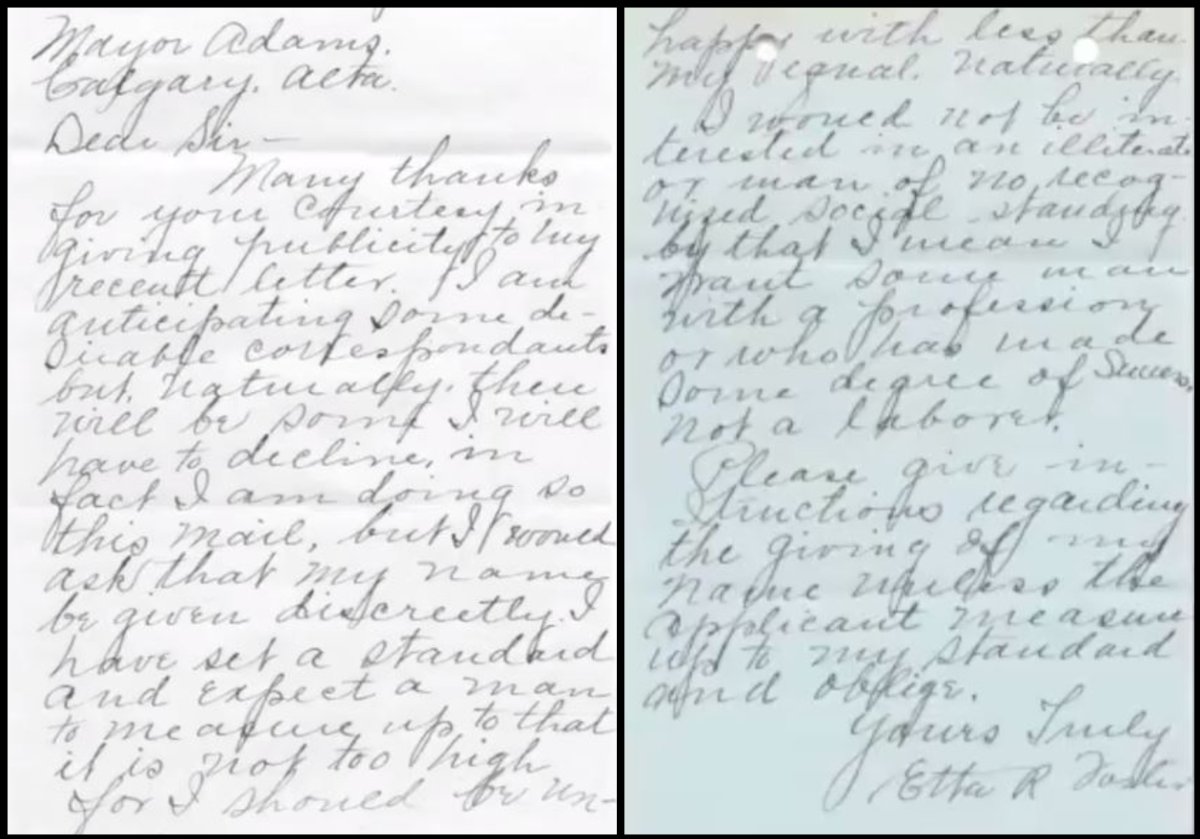 Mayor Adams.
Calgary. Alta.
Dear Sir -
Many thanks
for your courtesy in
giving publicity to my
recent letter. I am
anticipating some de-
sirable correspondants
but, naturally, there
will be some I will
have to decline, in
fact I am doing so
this mail, but I would
ask that my name
be given discreetly. I
have set a standard
and expect a man
to measure up to that
it is not too high
for I should be un-
happy with less than
my equal. Naturally
I would not be in-
terested in an illiterate
or man of no recog-
nized social standing
by that I mean I
want some man
with a profession
or who has made
some degree of success,
not a laborer.
Please give in-
structions regarding
the giving of my
name unless the
applicant measure
up to my standard
and oblige.
Yours Truly
Etta R Foster